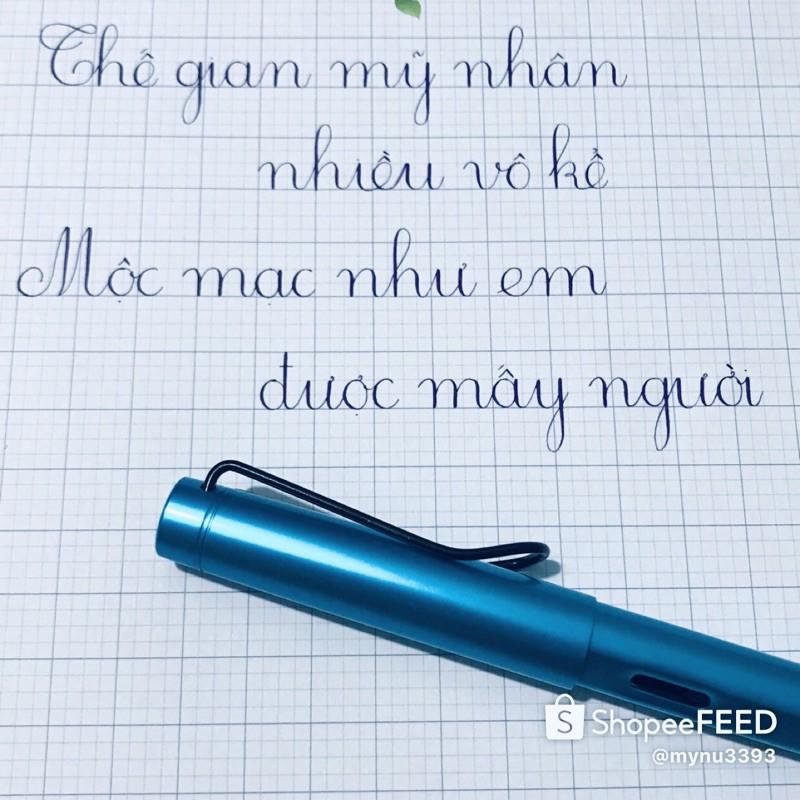 Thế gian mỹ nhân
nhiều vô kể
Mộc mạc như em
được mấy người
ShopeeFEED
@mynu3393